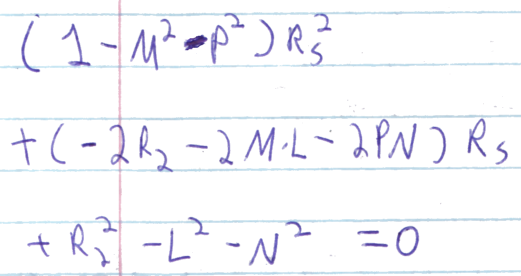 (1-M²-P²)R_s²
+(-2R₂-2M·L-2PN)R_s
+R₂²-L²-N²=0